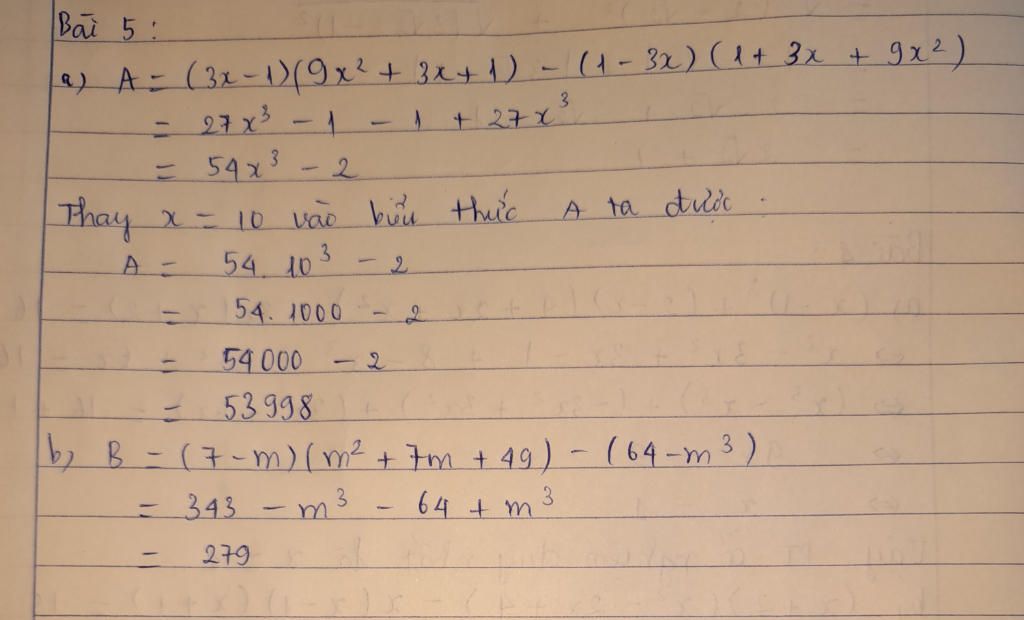 Bài 5 :
a) A = (3x-1)(9x² + 3x+1) - (1- 3x)(1+ 3x + 9x²)
= 27x³ - 1 - 1 + 27x³
= 54x³ - 2
Thay x = 10 vào biểu thức A ta được :
A = 54. 10³ - 2
= 54. 1000 - 2
= 54000 - 2
= 53998
b) B = (7-m)(m² + 7m + 49) - (64-m³)
= 343 - m³ - 64 + m³
= 279